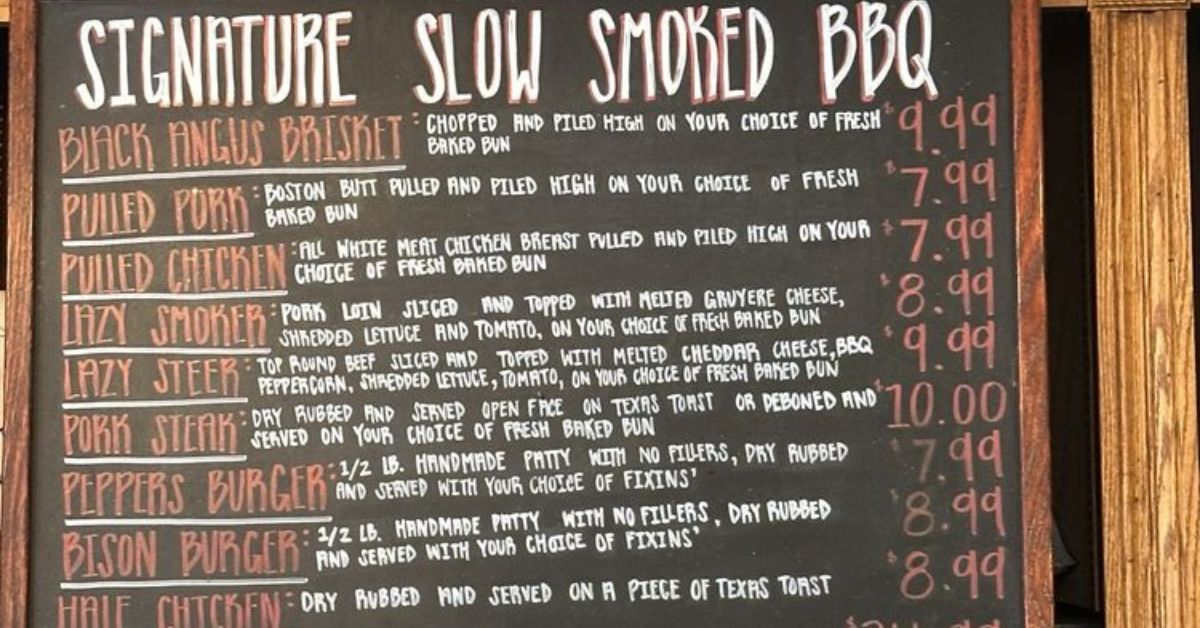 SIGNATURE SLOW SMOKED BBQ
BLACK ANGUS BRISKET: CHOPPED AND PILED HIGH ON YOUR CHOICE OF FRESH $9.99
BAKED BUN
PULLED PORK: BOSTON BUTT PULLED AND PILED HIGH ON YOUR CHOICE OF FRESH $7.99
BAKED BUN
PULLED CHICKEN: ALL WHITE MEAT CHICKEN BREAST PULLED AND PILED HIGH ON YOUR $7.99
CHOICE OF FRESH BAKED BUN
LAZY SMOKER: PORK LOIN SLICED AND TOPPED WITH MELTED GRUYERE CHEESE, $8.99
SHREDDED LETTUCE AND TOMATO, ON YOUR CHOICE OF FRECH BAKED BUN
LAZY STEER: TOP ROUND BEEF SLICED AND TOPPED WITH MELTED CHEDDAR CHEESE, BBQ $9.99
PEPPERCORN, SHREDDED LETTUCE, TOMATO, ON YOUR CHOICE OF FRESH BAKED BUN
PORK STEAK: DRY RUBBED AND SERVED OPEN FACE ON TEXAS TOAST OR DEBONED AND $10.00
SERVED ON YOUR CHOICE OF FRESH BAKED BUN
PEPPERS BURGER: 1/2 LB. HANDMADE PATTY WITH NO FILLERS, DRY RUBBED $7.99
AND SERVED WITH YOUR CHOICE OF FIXINS'
BISON BURGER: 1/2 LB. HANDMADE PATTY WITH NO FILLERS, DRY RUBBED $8.99
AND SERVED WITH YOUR CHOICE OF FIXINS'
HALF CHICKEN: DRY RUBBED AND SERVED ON A PIECE OF TEXAS TOAST $8.99